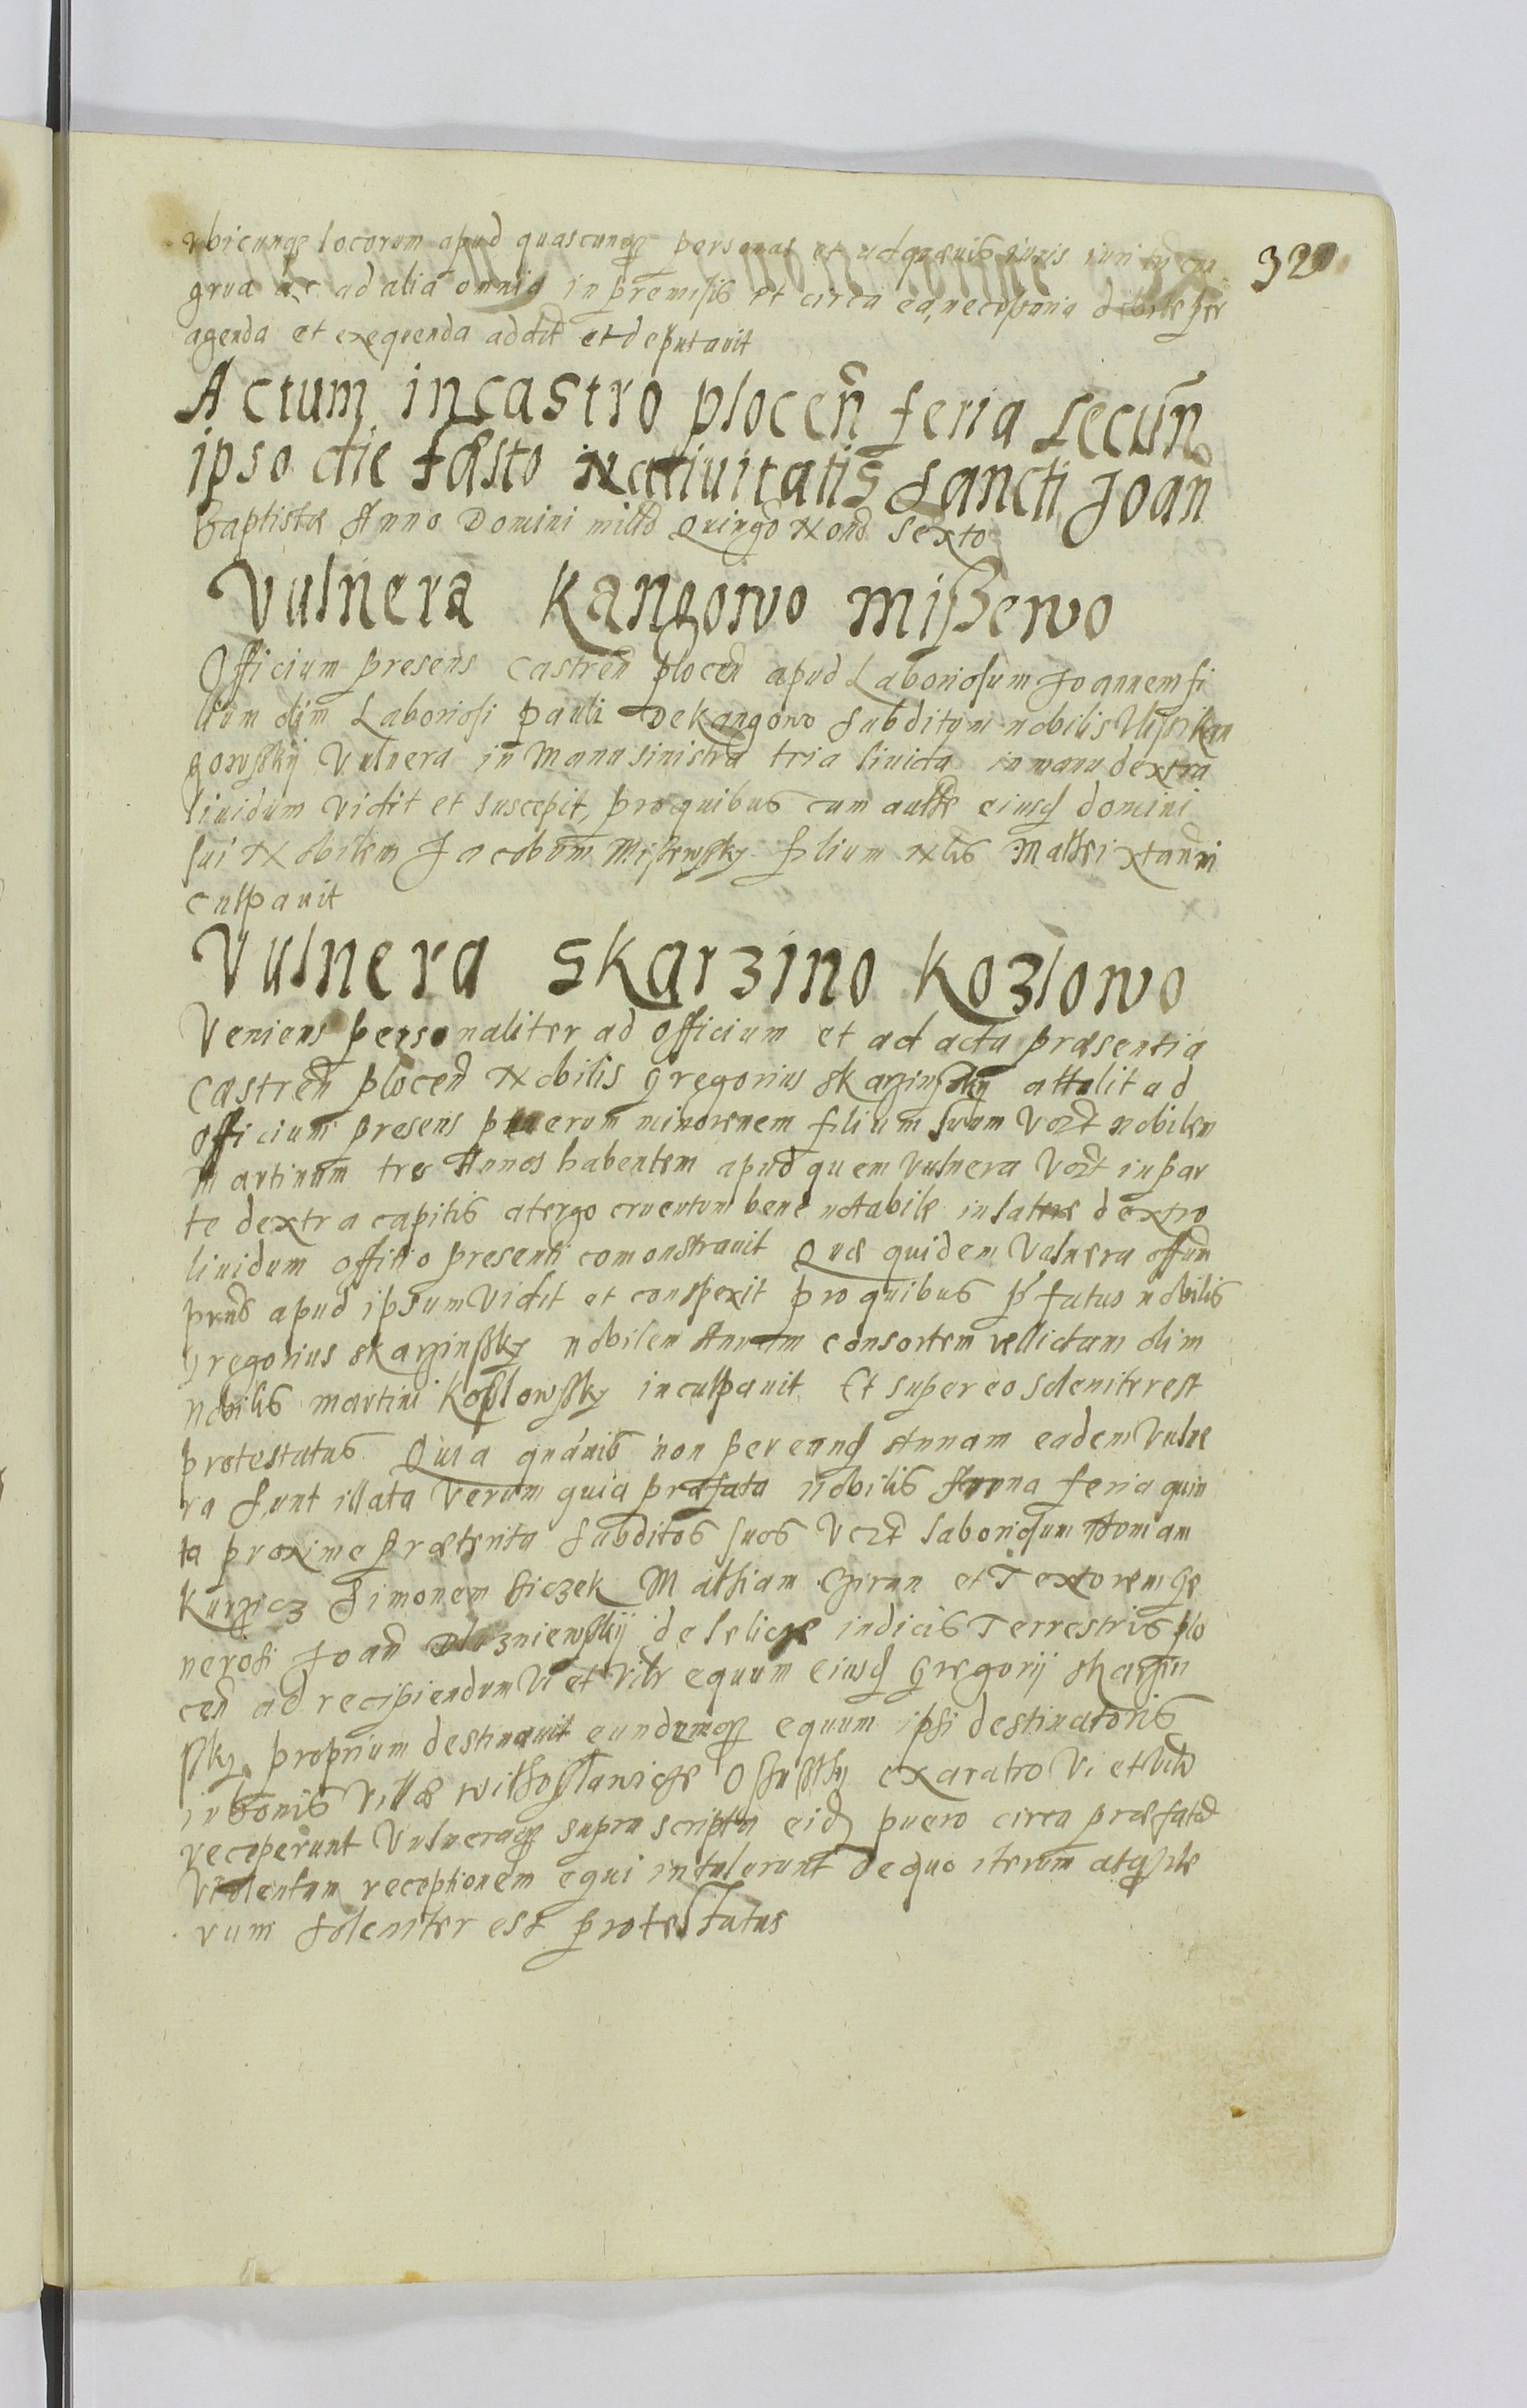 320
vbicunq₃ locorum apud quascunq₃ personas et ad quævis iuris
grua ac ad alia omnia in præmisis et circa ea necessaria debite per
agenda et exequenda addit et deputauit
Actum in castro plocen̄ feria secun̄
ipso die fæsto Natiuitatis Sancti Joan̄
Baptistæ Anno Domini mill̄o Quingō Nonō sexto
Vulnera Kangowo Mißewo
Officium presens castren̄ plocen̄ apud Laboriosum Joannem fi
lium olim Laboriosi Pauli De Kangowo subditum nobilis
gowsskij Vulnera in Manu sinistra tria liuida in manu dextra
liuidum vidit et suscepit, pro quibus cum eiusd domini
sui Nobilem Jacobum Missewssky filium Matthei
culpauit
Vulnera Skarzino Kozlowo
Veniens personaliter ad officium et ad acta præsentia
Castren̄ plocen̄ Nobilis Gregorius Skarzinssky attulit ad
officium presens puerum minorenem filium suum nobilem
Martinum tres Annos habentem apud quem vulnera in par
te dextra capitis a tergo cruentum bene notabile in latere dextro
liuidum offitio presenti comonstrauit Quæ quidem Vulnera offm̄
pr̄ns apud ipsum vidit et conspexit pro quibus p̄fatus nobilis
Gregorius Skarzinssky nobilem Annam consortem rellictam olim
Nobilis Martini Koslowssky inculpauit Et super eo soleniter est
protestatus Quia quāuis non per eand Annam eadem vulne
ra sunt illata Verum quia præfata nobilis Anna feria quin
ta proxime præterita subditos suos laboriosum Adomam
Kurzicz Simonem Siczek Mathiam et Textorem Ge
nerosi Joan̄ de Selicze iudicis Terrestris plo
cen̄ ad recipiendum vi et equum eiusd Gregorij Skarzin
ssky proprium destinauit eundemq₃ equum ipsi destinatoris
in bonis Villæ Withoslawicze ex aratro vi et
receperunt Vulneraq₃ supra scripta eid puero circa præfatā
Violentam receptionem equi intulerunt de quo iterum atq₃ ite
rum soleniter est protestatus